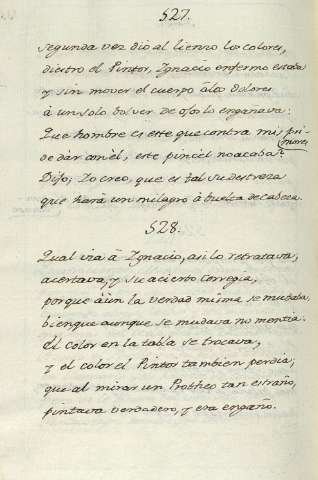 527.
segunda vez dió al lienzo los colores,
diestro el Pintor, Ignacio enfermo estaba
y sin mover el cuerpo à los dolores
à un solo bolver de ojos lo engañava:
Que hombre es este que contra mis pri-
mores
de dar en èl, este pincèl no acaba?
Dijo; Yo creo, que es tal su destreza
que harà un milagro à buelta de cabeza.
528.
Qual via à Ignacio, asi lo retratava,
acertava, y su acierto corregia,
porque àun la verdad misma se mudaba,
bien que aunque se mudava no mentia.
El color en la tabla se trocava,
y el color el Pintor tambien perdia;
que al mirar un Protheo tan estraño,
pintava verdadero, y era engaño.